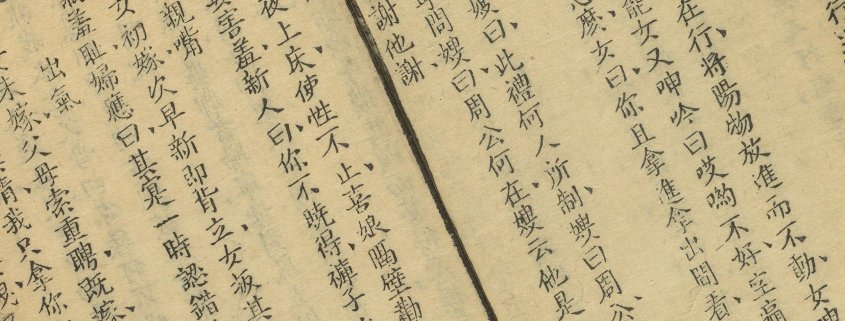 行
在行、將陽物放進而不動、女呻
女又呻吟曰哎喲不好、空
麽女曰、你且拿進拿出間看、
嫂曰、此禮何人所制、嫂曰周公
問嫂曰周公何在、嫂云他是
謝他謝、
夜上床使性不止、茗娘隔壁勸
害羞、新人曰、你不曉得、褲子
親嘴
女初嫁、次早新即背立、女扳其
羞恥婦應曰、其寔一時認錯
出氣
未嫁、父母索重聘、既嫁、
情我只拿你